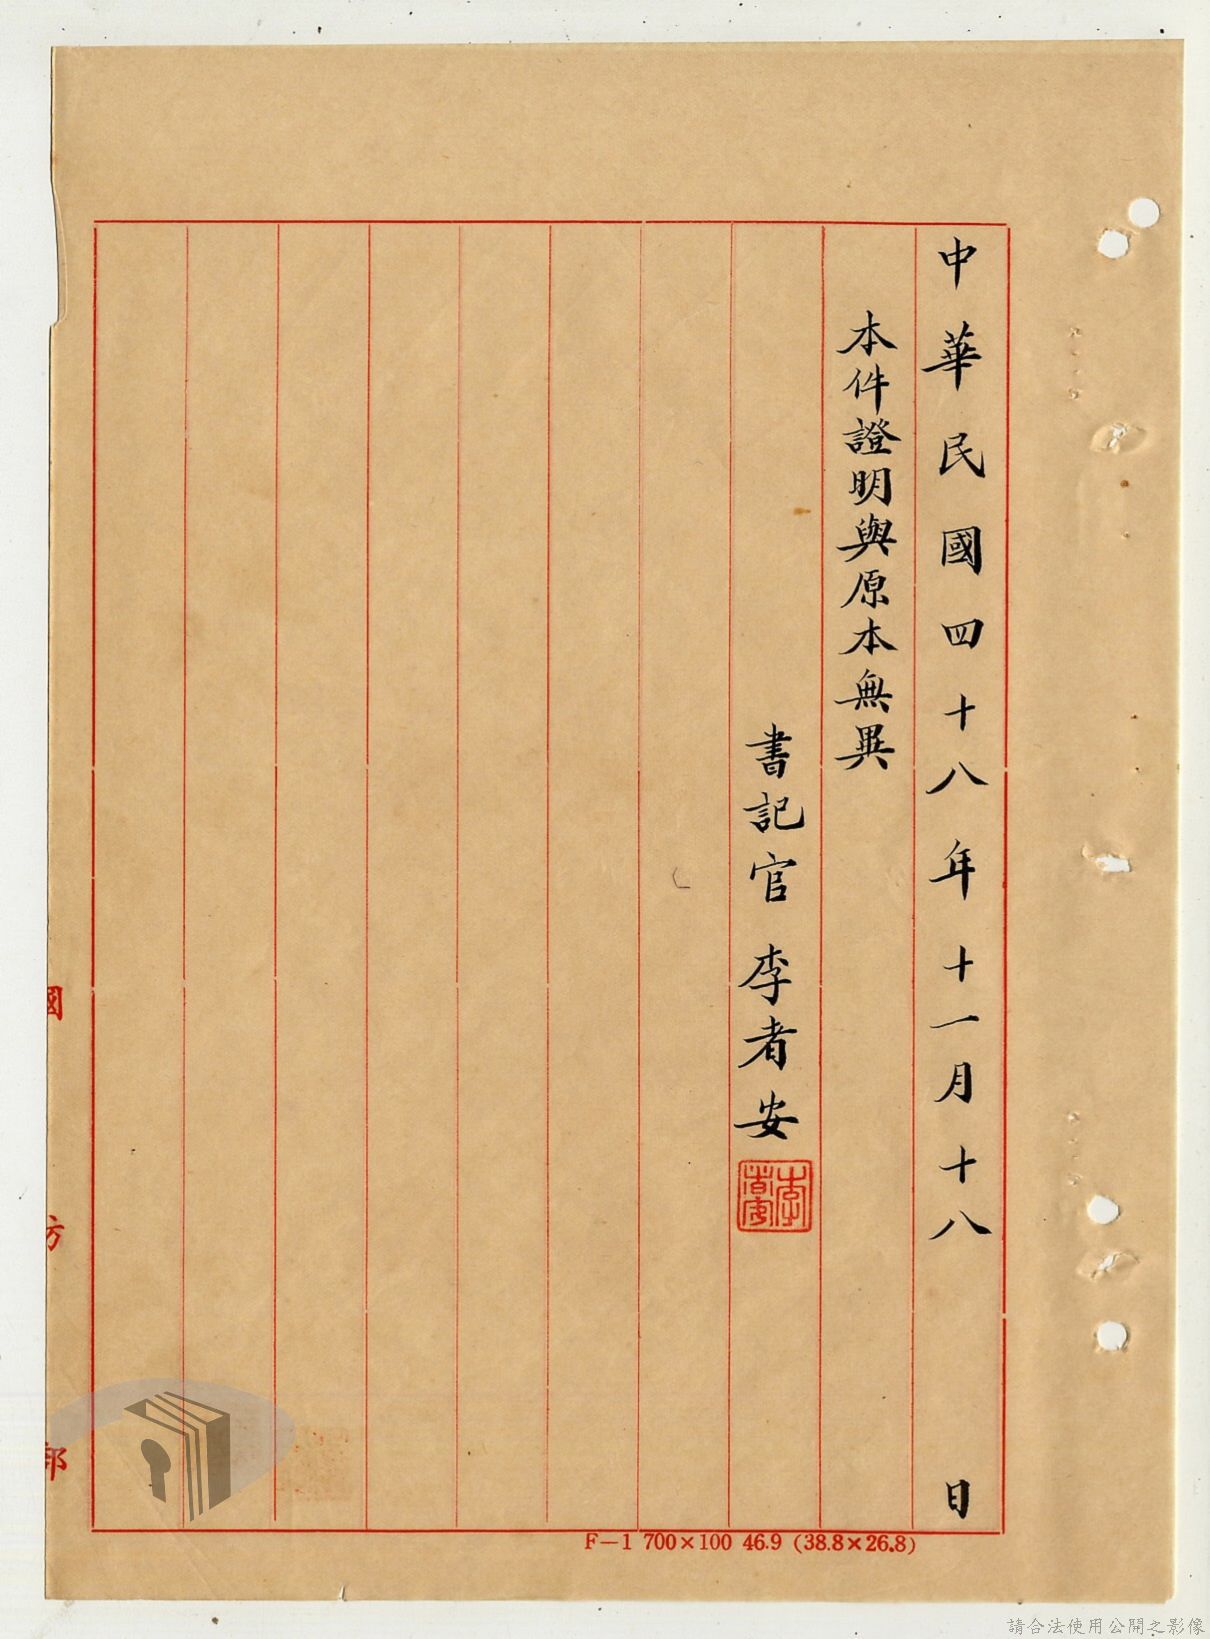 中華民國四十八年十一月十八日
本件證明與原本無異
書記官 李者安
李者安
國防部
F—1 700×100 46.9 (38.8×26.8)
請合法使用公開之影像